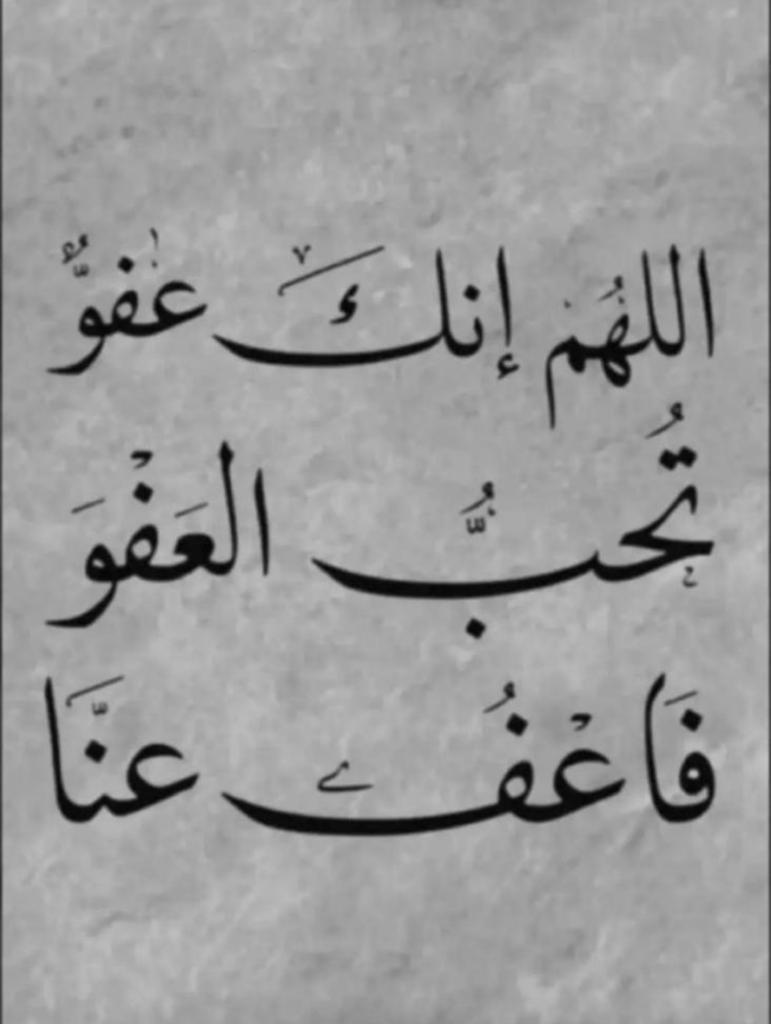 اللهُمْ إنكَ عَفوٌّ
تُحبُّ العَفْوَ
فَاعْفُ عنَّا